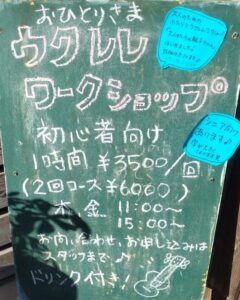 おひとりさま
ウクレレ
ワークショップ
初心者向け
1時間 ¥3500/回
(2回コース¥6000)
木、金 11:00〜
15:00〜
お問い合わせ、お申し込みは
スタッフまで♪
ドリンク付き!
シニア向け
あります♪